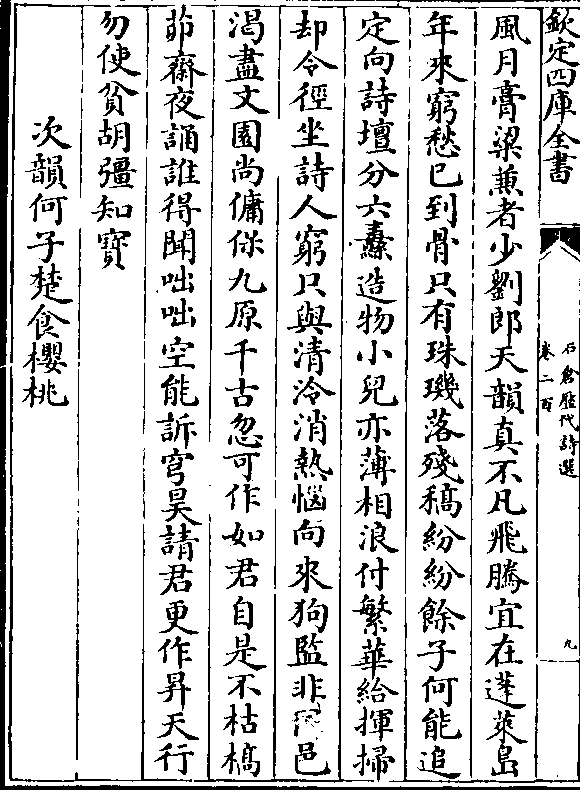 欽定四庫全書
石倉歷代詩選
卷二百
九
風月膏粱兼者少劉郎天韻真不凡飛騰宜在蓬萊島
年來窮愁已到骨只有珠璣落殘稿紛紛餘子何能追
定向詩壇分六纛造物小兒亦薄相浪付繁華給揮掃
却令徑坐詩人窮只與清泠消熱惱向來狗監非邑
渴盡文園尚傭保九原千古忽可作如君自是不枯槁
茆齋夜誦誰得聞咄咄空能訴穹昊請君更作昇天行
勿使貧胡彊知寶
次韻何子楚食櫻桃